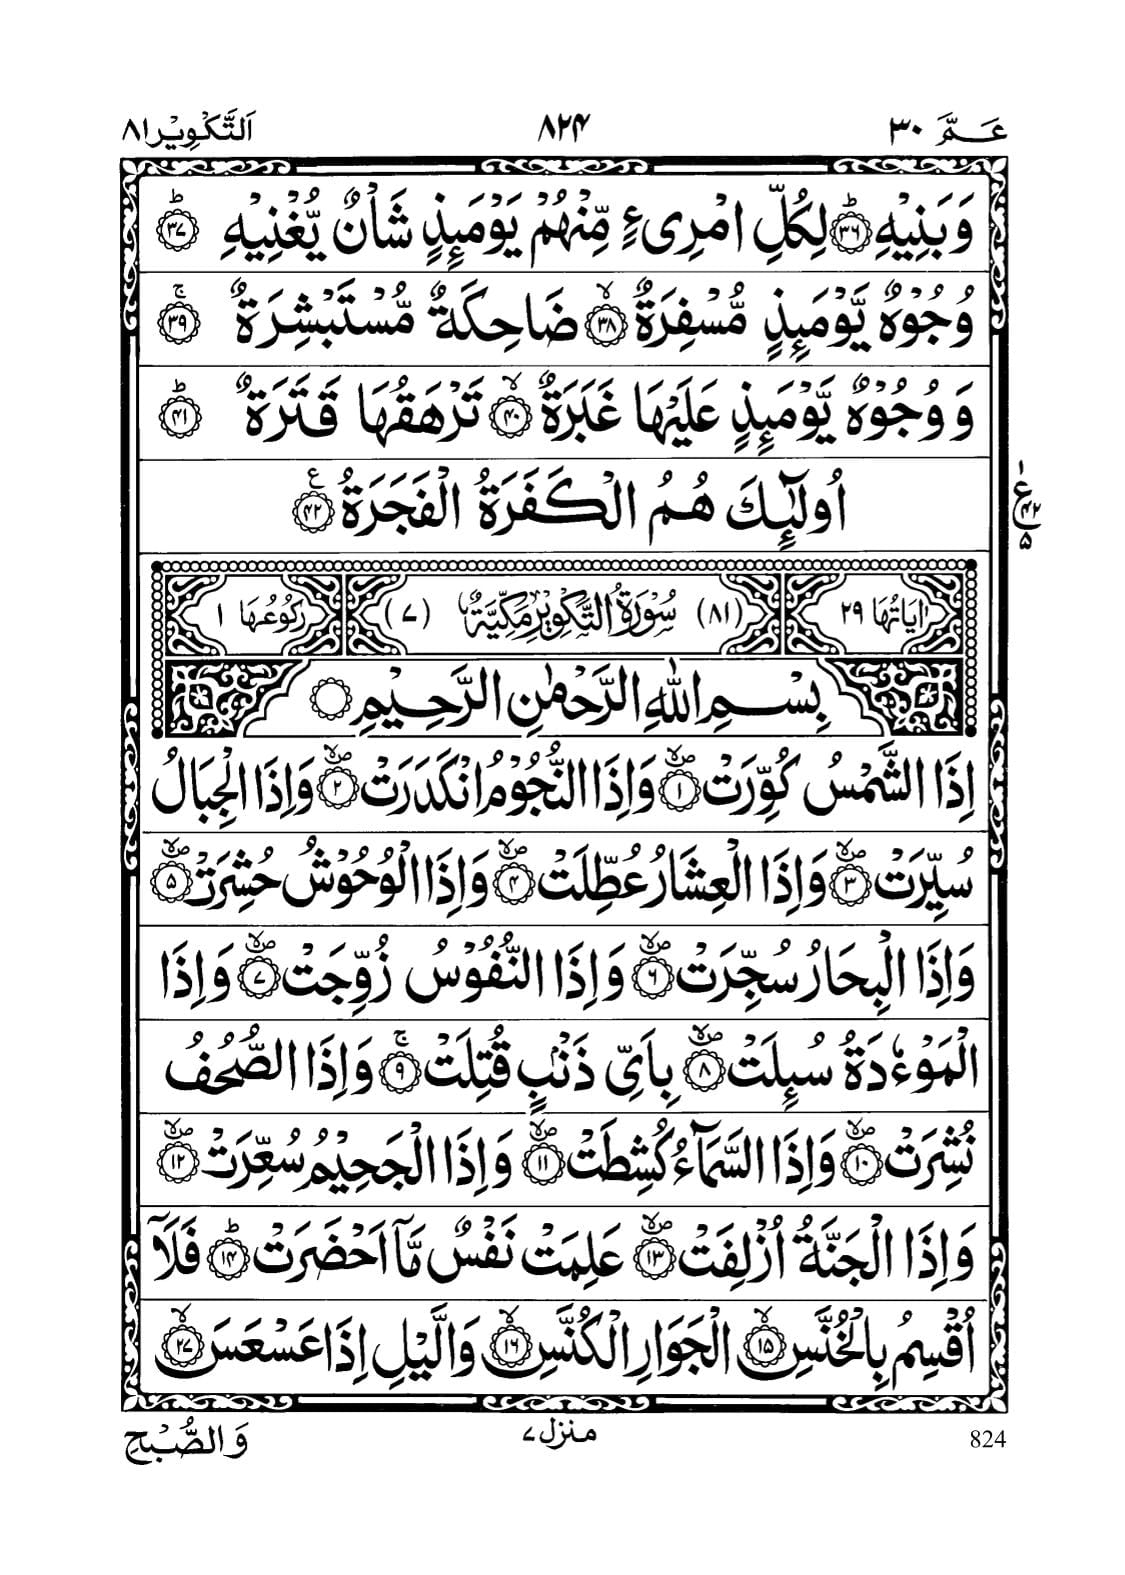 عَـمَّ ٣٠ ٨٢۴ اَلتَّكْوِيْر ٨١
وَ بَنِيْهِؕ ﴿٣٦﴾ لِكُلِّ امْرِىءٍ مِّنْهُمْ يَوْمَىِٕذٍ شَاْنٌ يُّغْنِيْهِؕ ﴿٣٧﴾
وُجُوْهٌ يَّوْمَىِٕذٍ مُّسْفِرَةٌۙ ﴿٣٨﴾ ضَاحِكَةٌ مُّسْتَبْشِرَةٌۚ ﴿٣٩﴾
وَ وُجُوْهٌ يَّوْمَىِٕذٍ عَلَيْهَا غَبَرَةٌۙ ﴿۴٠﴾ تَرْهَقُهَا قَتَرَةٌؕ ﴿۴١﴾
اُولٰٓىِٕكَ هُمُ الْكَفَرَةُ الْفَجَرَةُ ﴿۴٢﴾ع
١
ع ۴٢
۵
اٰيَاتُهَا ٢٩ (٨١) سُوْرَةُ التَّكْوِيْرِ مَكِّيَّةٌ (٧) رُكُوْعُهَا ١
بِسْمِ اللّٰهِ الرَّحْمٰنِ الرَّحِيْمِ
اِذَا الشَّمْسُ كُوِّرَتْ ﴿١﴾ۙصلا وَاِذَا النُّجُوْمُ انْكَدَرَتْ ﴿٢﴾ۙصلا وَاِذَا الْجِبَالُ
سُيِّرَتْ ﴿٣﴾ۙصلا وَاِذَا الْعِشَارُ عُطِّلَتْ ﴿۴﴾ۙصلا وَاِذَا الْوُحُوْشُ حُشِرَتْ ﴿۵﴾ۙصلا
وَاِذَا الْبِحَارُ سُجِّرَتْ ﴿٦﴾ۙصلا وَاِذَا النُّفُوْسُ زُوِّجَتْ ﴿٧﴾ۙصلا وَاِذَا
الْمَوْءٗدَةُ سُىِٕلَتْ ﴿٨﴾ۙصلا بِاَىِّ ذَنْۢبٍ قُتِلَتْۚ ﴿٩﴾ وَاِذَا الصُّحُفُ
نُشِرَتْ ﴿١٠﴾ۙصلا وَاِذَا السَّمَآءُ كُشِطَتْ ﴿١١﴾ۙصلا وَاِذَا الْجَحِيْمُ سُعِّرَتْ ﴿١٢﴾ۙصلا
وَاِذَا الْجَنَّةُ اُزْلِفَتْ ﴿١٣﴾ۙصلا عَلِمَتْ نَفْسٌ مَّاۤ اَحْضَرَتْؕ ﴿١۴﴾ فَلَاۤ
اُقْسِمُ بِالْخُنَّسِۙ ﴿١۵﴾ الْجَوَارِ الْكُنَّسِۙ ﴿١٦﴾ وَالَّيْلِ اِذَا عَسْعَسَۙ ﴿٢٧﴾
824 منزل ٧ وَالصُّبْحِ